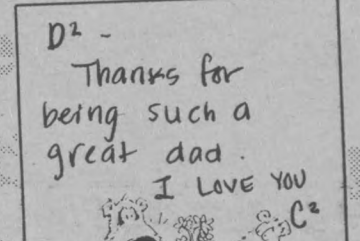 D² -
Thanks for
being such a
great dad.
I LOVE YOU
C²